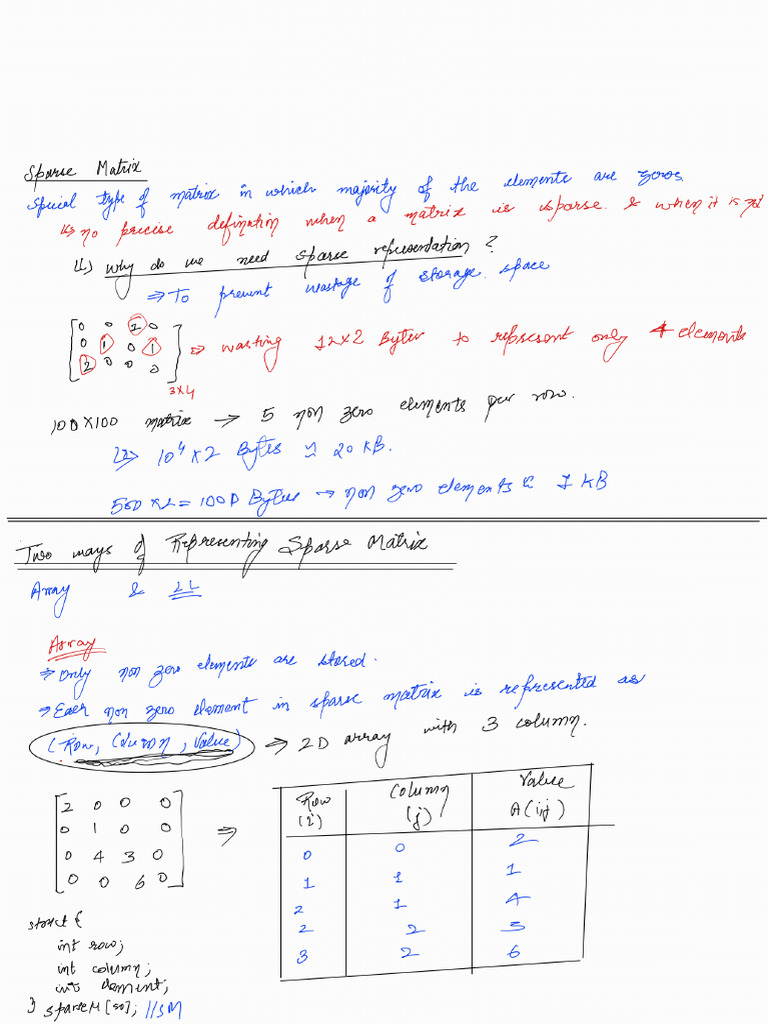 Sparse Matrix
Special type of matrix in which majority of the elements are zeros.
↳ no precise definition when a matrix is sparse & when it is not
↳) Why do we need sparse representation?
⇒ To prevent wastage of storage space
0 0 2 0
0 1 0 1
2 0 0 0
3x4
⇒ wasting 12x2 Bytes to represent only 4 elements
100x100 matrix → 5 non zero elements per row.
10⁴ x 2 Bytes ≈ 20 KB.
500 x 2 = 1000 Bytes → non zero elements ≈ 1 KB
Two ways of Representing Sparse Matrix
Array & LL
Array
⇒ Only non zero elements are stored.
⇒ Each non zero element in sparse matrix is represented as
(Row, Column, Value) → 2D array with 3 column.
2 0 0 0
0 1 0 0
0 4 3 0
0 0 6 0
⇒
Row (i) Column (j) Value A(i,j)
0 0 2
1 1 1
2 1 4
2 2 3
3 2 6
struct {
int row;
int column;
int element;
} sparseM [50]; //SM